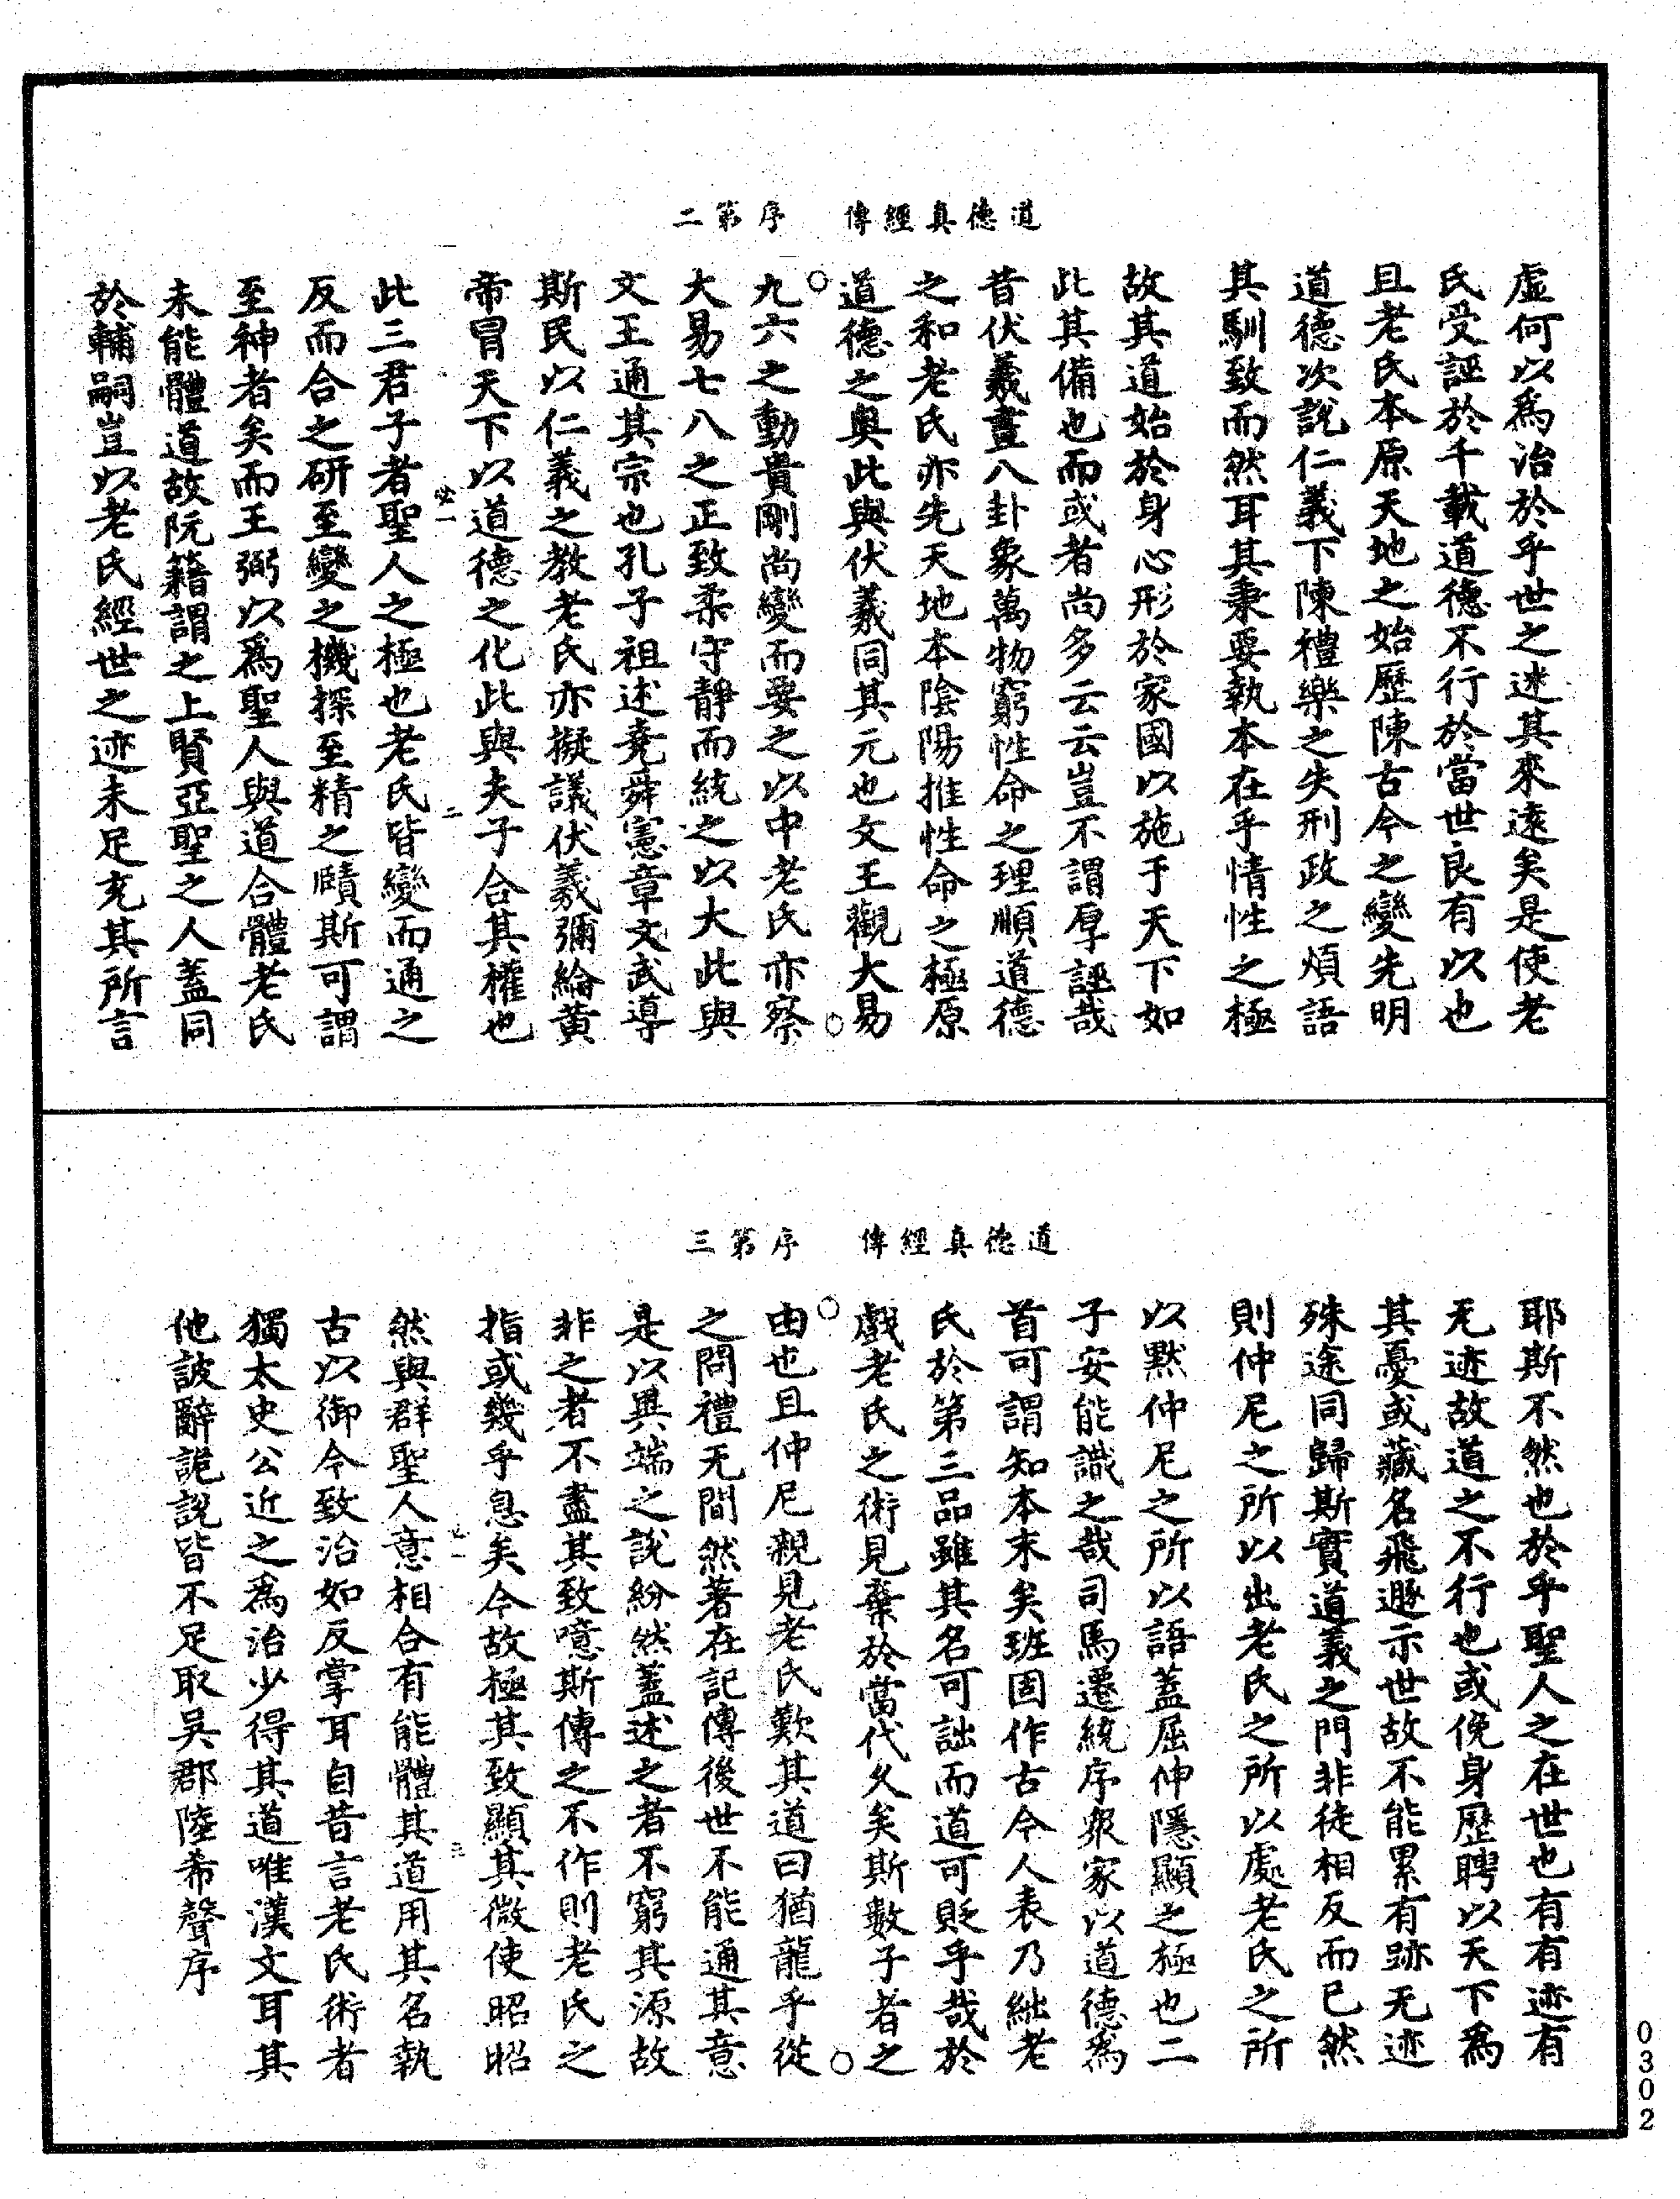 道德真經傳　序第二
虛何以爲治於乎世之迷其來遠矣是使老
氏受誣於千載道德不行於當世良有以也
且老氏本原天地之始歷陳古今之變先明
道德次說仁義下陳禮樂之失刑政之煩語
其馴致而然耳其秉要執本在乎情性之極
故其道始於身心形於家國以施于天下如
此其備也而或者尚多云云豈不謂厚誣哉
昔伏羲畫八卦象萬物窮性命之理順道德
之和老氏亦先天地本陰陽推性命之極原
道德之奧此與伏羲同其元也文王觀大易
九六之動貴剛尚變而要之以中老氏亦察
大易七八之正致柔守靜而統之以大此與
文王通其宗也孔子祖述堯舜憲章文武導
斯民以仁義之教老氏亦擬議伏羲彌綸黃
帝冒天下以道德之化此與夫子合其權也
此三君子者聖人之極也老氏皆變而通之
反而合之研至變之機探至精之賾斯可謂
至神者矣而王弼以爲聖人與道合體老氏
未能體道故阮籍謂之上賢亞聖之人蓋同
於輔嗣豈以老氏經世之迹未足充其所言
道德真經傳　序第三
耶斯不然也於乎聖人之在世也有有迹有
无迹故道之不行也或俛身歷聘以天下爲
其憂或藏名飛遯示世故不能累有跡无迹
殊途同歸斯實道義之門非徒相反而已然
則仲尼之所以出老氏之所以處老氏之所
以默仲尼之所以語蓋屈伸隱顯之極也二
子安能識之哉司馬遷統序衆家以道德爲
首可謂知本末矣班固作古今人表乃絀老
氏於第三品雖其名可詘而道可貶乎哉於
戲老氏之術見棄於當代久矣斯數子者之
由也且仲尼親見老氏歎其道曰猶龍乎從
之問禮无間然著在記傳後世不能通其意
是以異端之說紛然蓋述之者不窮其源故
非之者不盡其致噫斯傳之不作則老氏之
指或幾乎息矣今故極其致顯其微使昭昭
然與群聖人意相合有能體其道用其名執
古以御今致治如反掌耳自昔言老氏術者
獨太史公近之爲治少得其道唯漢文耳其
他詖辭詭說皆不足取吳郡陸希聲序
0302